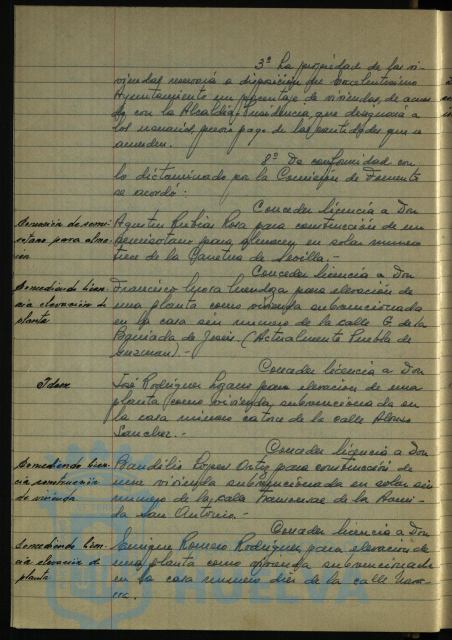 3º La propiedad de las vi-
viendas reservará a disposición del Excelentísimo
Ayuntamiento un porcentaje de viviendas, de acuer-
do con la Alcaldía Presidencia, que designará a
los usuarios, previo pago de las cantidades que se
acuerden.
8º De conformidad con
lo dictaminado por la Comisión de Fomento
se acordó:
Conceder licencia a Don
Licencia de semi-
sotano para alma-
cén
Agustín Rubia Rosa para construcción de un
semisotano para almacen, en solar número
trece de la Carretera de Sevilla.-
Conceder licencia a Don
Concediendo licen-
cia elevación de
planta
Francisco Mora Mendoza para elevación de
una planta como vivienda subvencionada
en la casa sin número de la calle G de la
Barriada de Jesús. (Actualmente Puebla de
Guzman).-
Conceder licencia a Don
Idem
José Rodríguez Lozano para elevación de una
planta, como vivienda subvencionada en
la casa número catorce de la calle Alonso
Sanchez.-
Conceder licencia a Don
Concediendo licen-
cia construcción
de vivienda
Baudilio Lopez Ortiz para construcción de
una vivienda subvencionada en solar sin
número de la calle de la Barria-
da San Antonio.-
Conceder licencia a Don
Concediendo licen-
cia elevación de
planta
Enrique Romero Rodríguez para elevación de
una planta como vivienda subvencionada
en la casa número diez de la calle Nava-
rra.
HUELVA